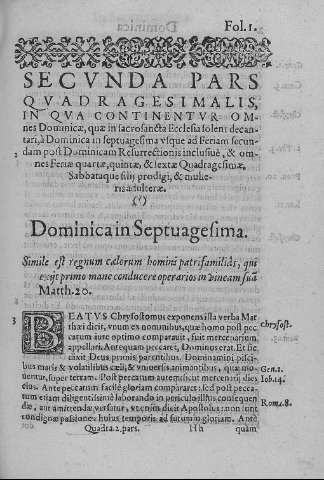 Fol. 1.
SECVNDA PARS
QVADRAGESIMALIS,
IN QVA CONTINENTVR OM-
nes Dominicæ, quæ in sacrosancta Ecclesia solent decan-
tari, à Dominica in septuagesima vsque ad Feriam secun-
dam post Dominicam Resurrectionis inclusiuè, & om-
nes Feriæ quartæ, quintæ, & sextæ Quadragesimæ,
Sabbataque filij prodigi, & mulie-
ris adulteræ.
Dominica in Septuagesima.
Simile est regnum cælorum homini patrifamiliâs, qui
exijt primo mane conducere operarios in vineam suã
Matth. 20.
BEATVS Chrysostomus exponens illa verba Mat
thæi dicit, vnum ex nominibus, quæ homo post pec
catum aute optimo comparauit, fuit mercenarium
appellari. Antequam peccaret, Dominus erat. Et sic
dixit Deus primis parentibus. Dominamini pisci-
bus maris & volatilibus cæli, & vniuersis animantibus, quæ mo-
uentur, super terram. Post peccatum autem sicut mercenarij dies
eius. Ante peccatum facilè gloriam compararet: sed post pecca-
tum etiam diligentissimè laborando in periculo illius consequen
dæ, aut amittendæ versatur, vt enim dicit Apostolus: non sunt
condignæ passiones huius temporis ad futuram gloriam. Ante
Chrysost.
Gen. 1.
Iob. 14.
Rom. 8.
Quadra. 2. pars.
Hh
quàm